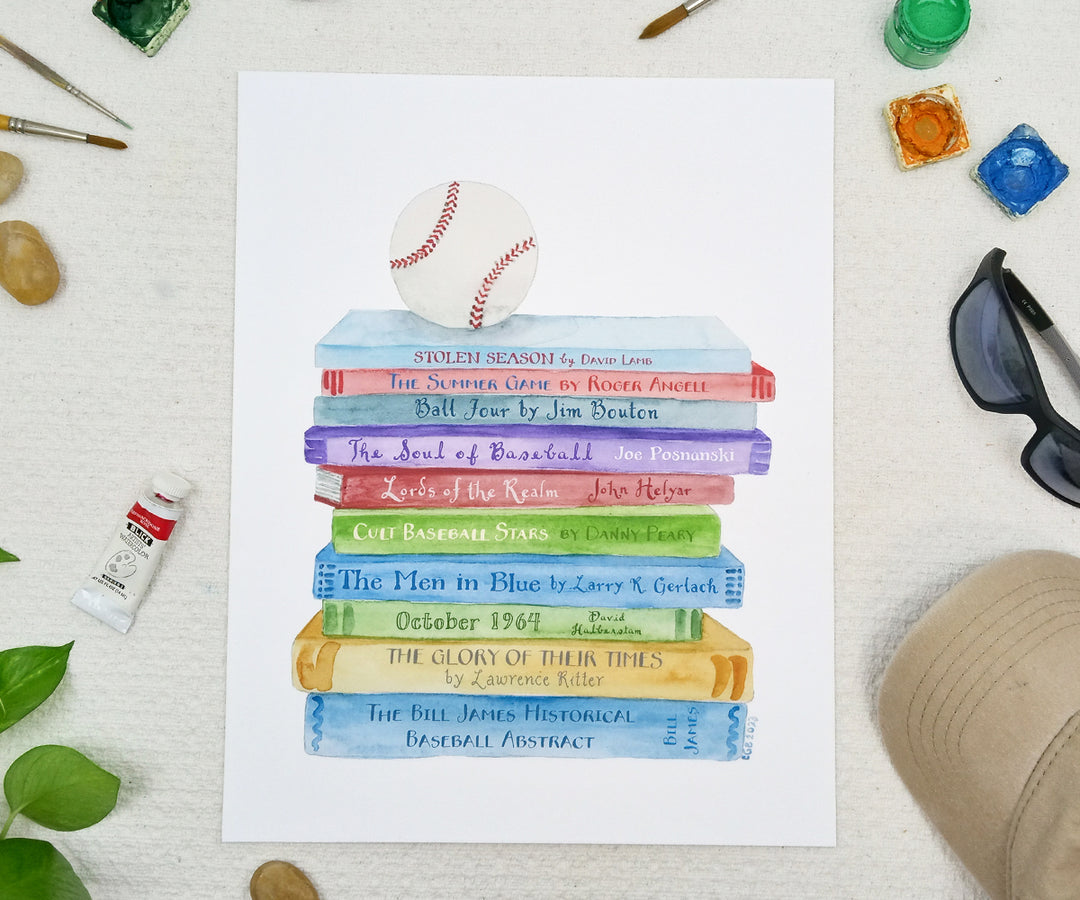 STOLEN SEASON by DAVID LAMB
THE SUMMER GAME BY ROGER ANGELL
Ball Four by Jim Bouton
The Soul of Baseball Joe Posnanski
Lords of the Realm John Helyar
CULT BASEBALL STARS BY DANNY PEARY
The Men in Blue by Larry R. Gerlach
October 1964 David
Halberstam
THE GLORY OF THEIR TIMES
by Lawrence Ritter
THE BILL JAMES HISTORICAL
BASEBALL ABSTRACT
BILL
JAMES
CGB 2023
BLICK
ARTISTS'
WATERCOLOR